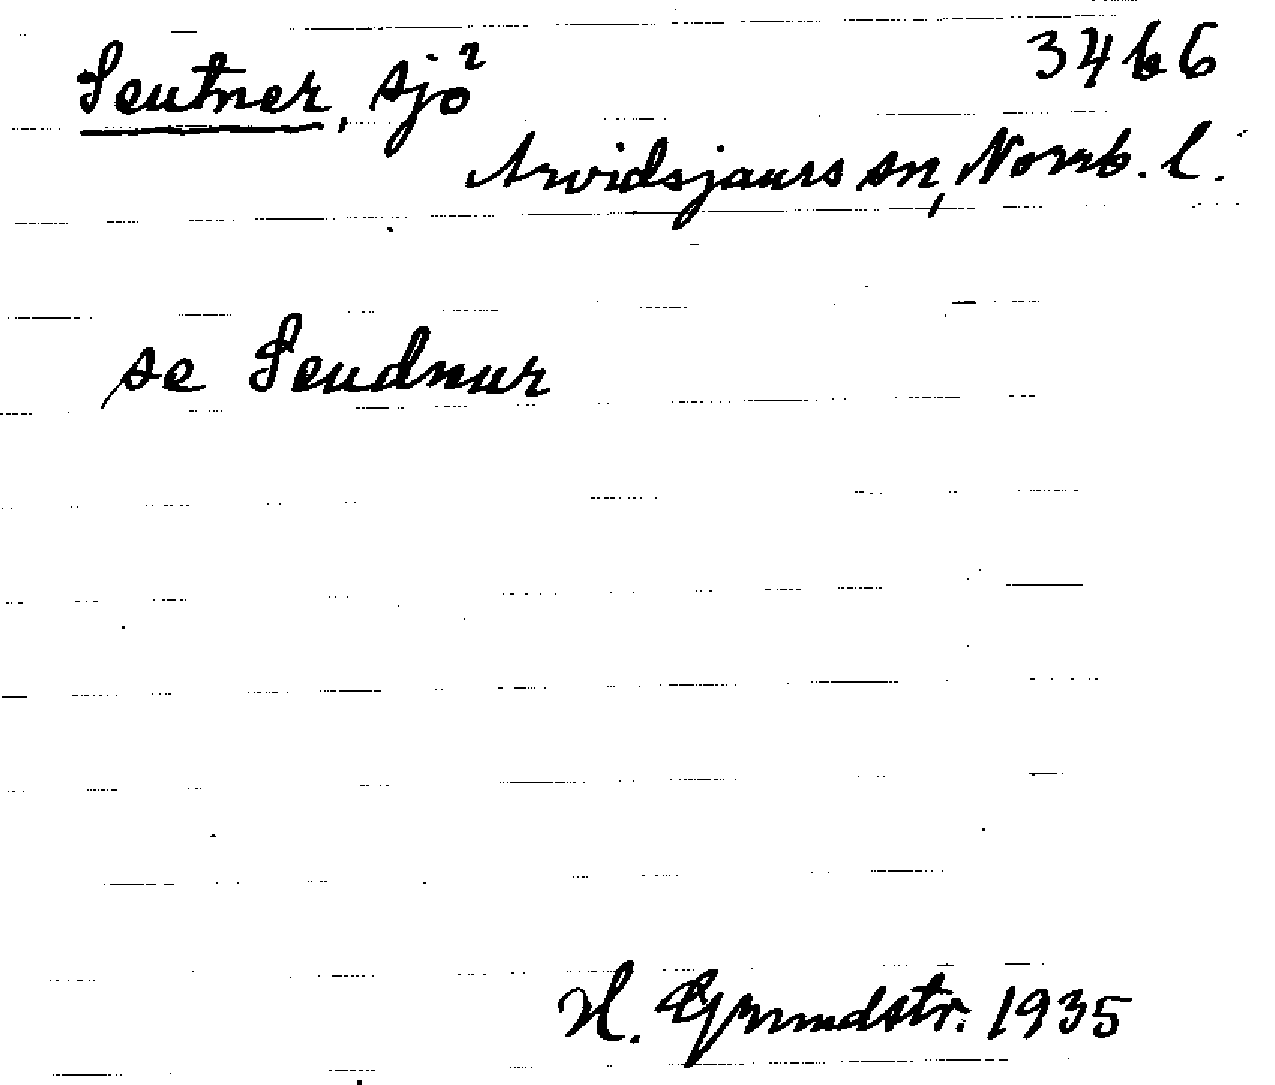 Seutner, sjö² 3466
Arvidsjaurs sn, Norrb. l.
se Seudnur
H. Grundstr. 1935